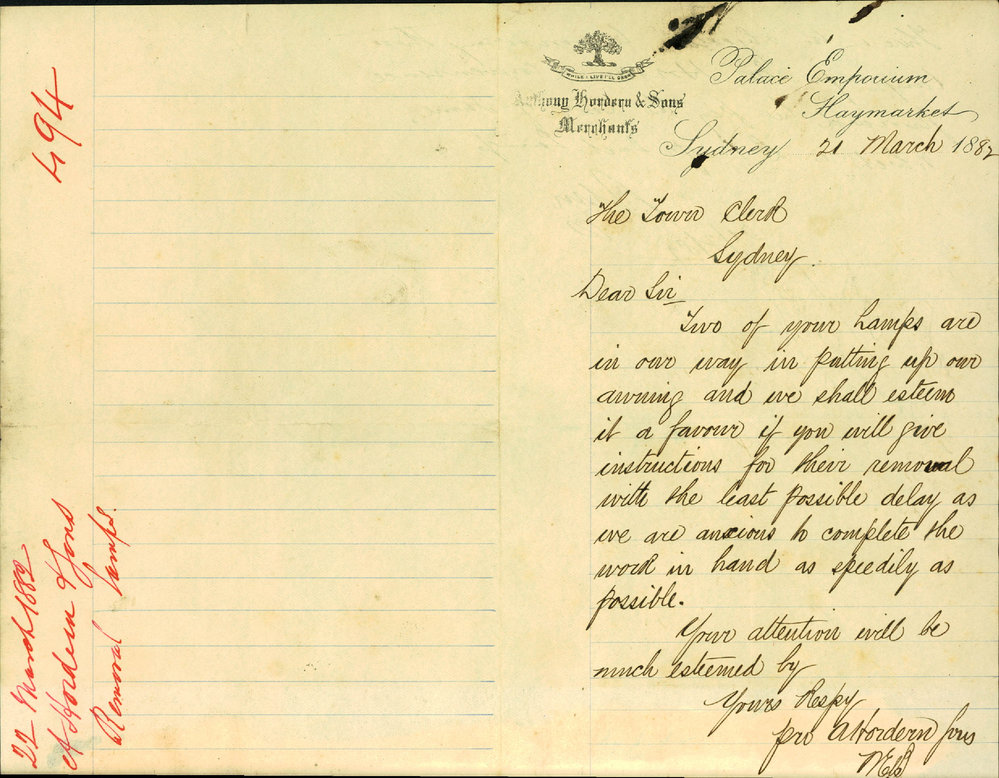 494
22 March 1882
A Hordern & Sons
Removal Lamps.
WHILE I LIVE I'LL GROW
Anthony Hordern & Sons
Merchants
Palace Emporium
Haymarket
Sydney 21 March 1882
The Town Clerk
Sydney.
Dear Sir
Two of your Lamps are
in our way in putting up our
awning and we shall esteem
it a favour if you will give
instructions for their removal
with the least possible delay as
we are anxious to complete the
work in hand as speedily as
possible.
Your attention will be
much esteemed by
Yours Respy
pro A Hordern Sons